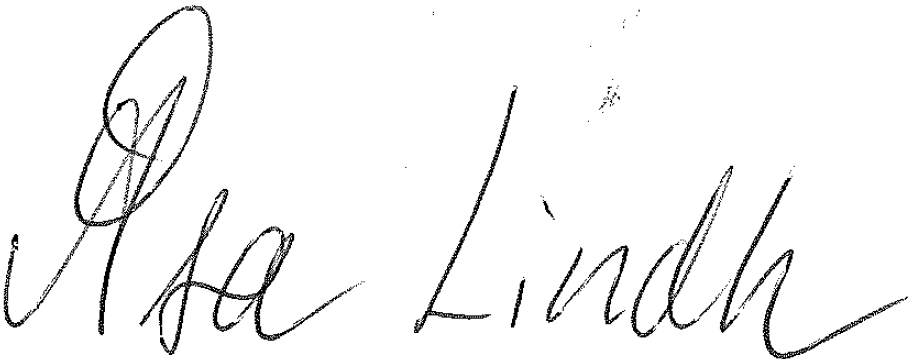 Åsa Lindh